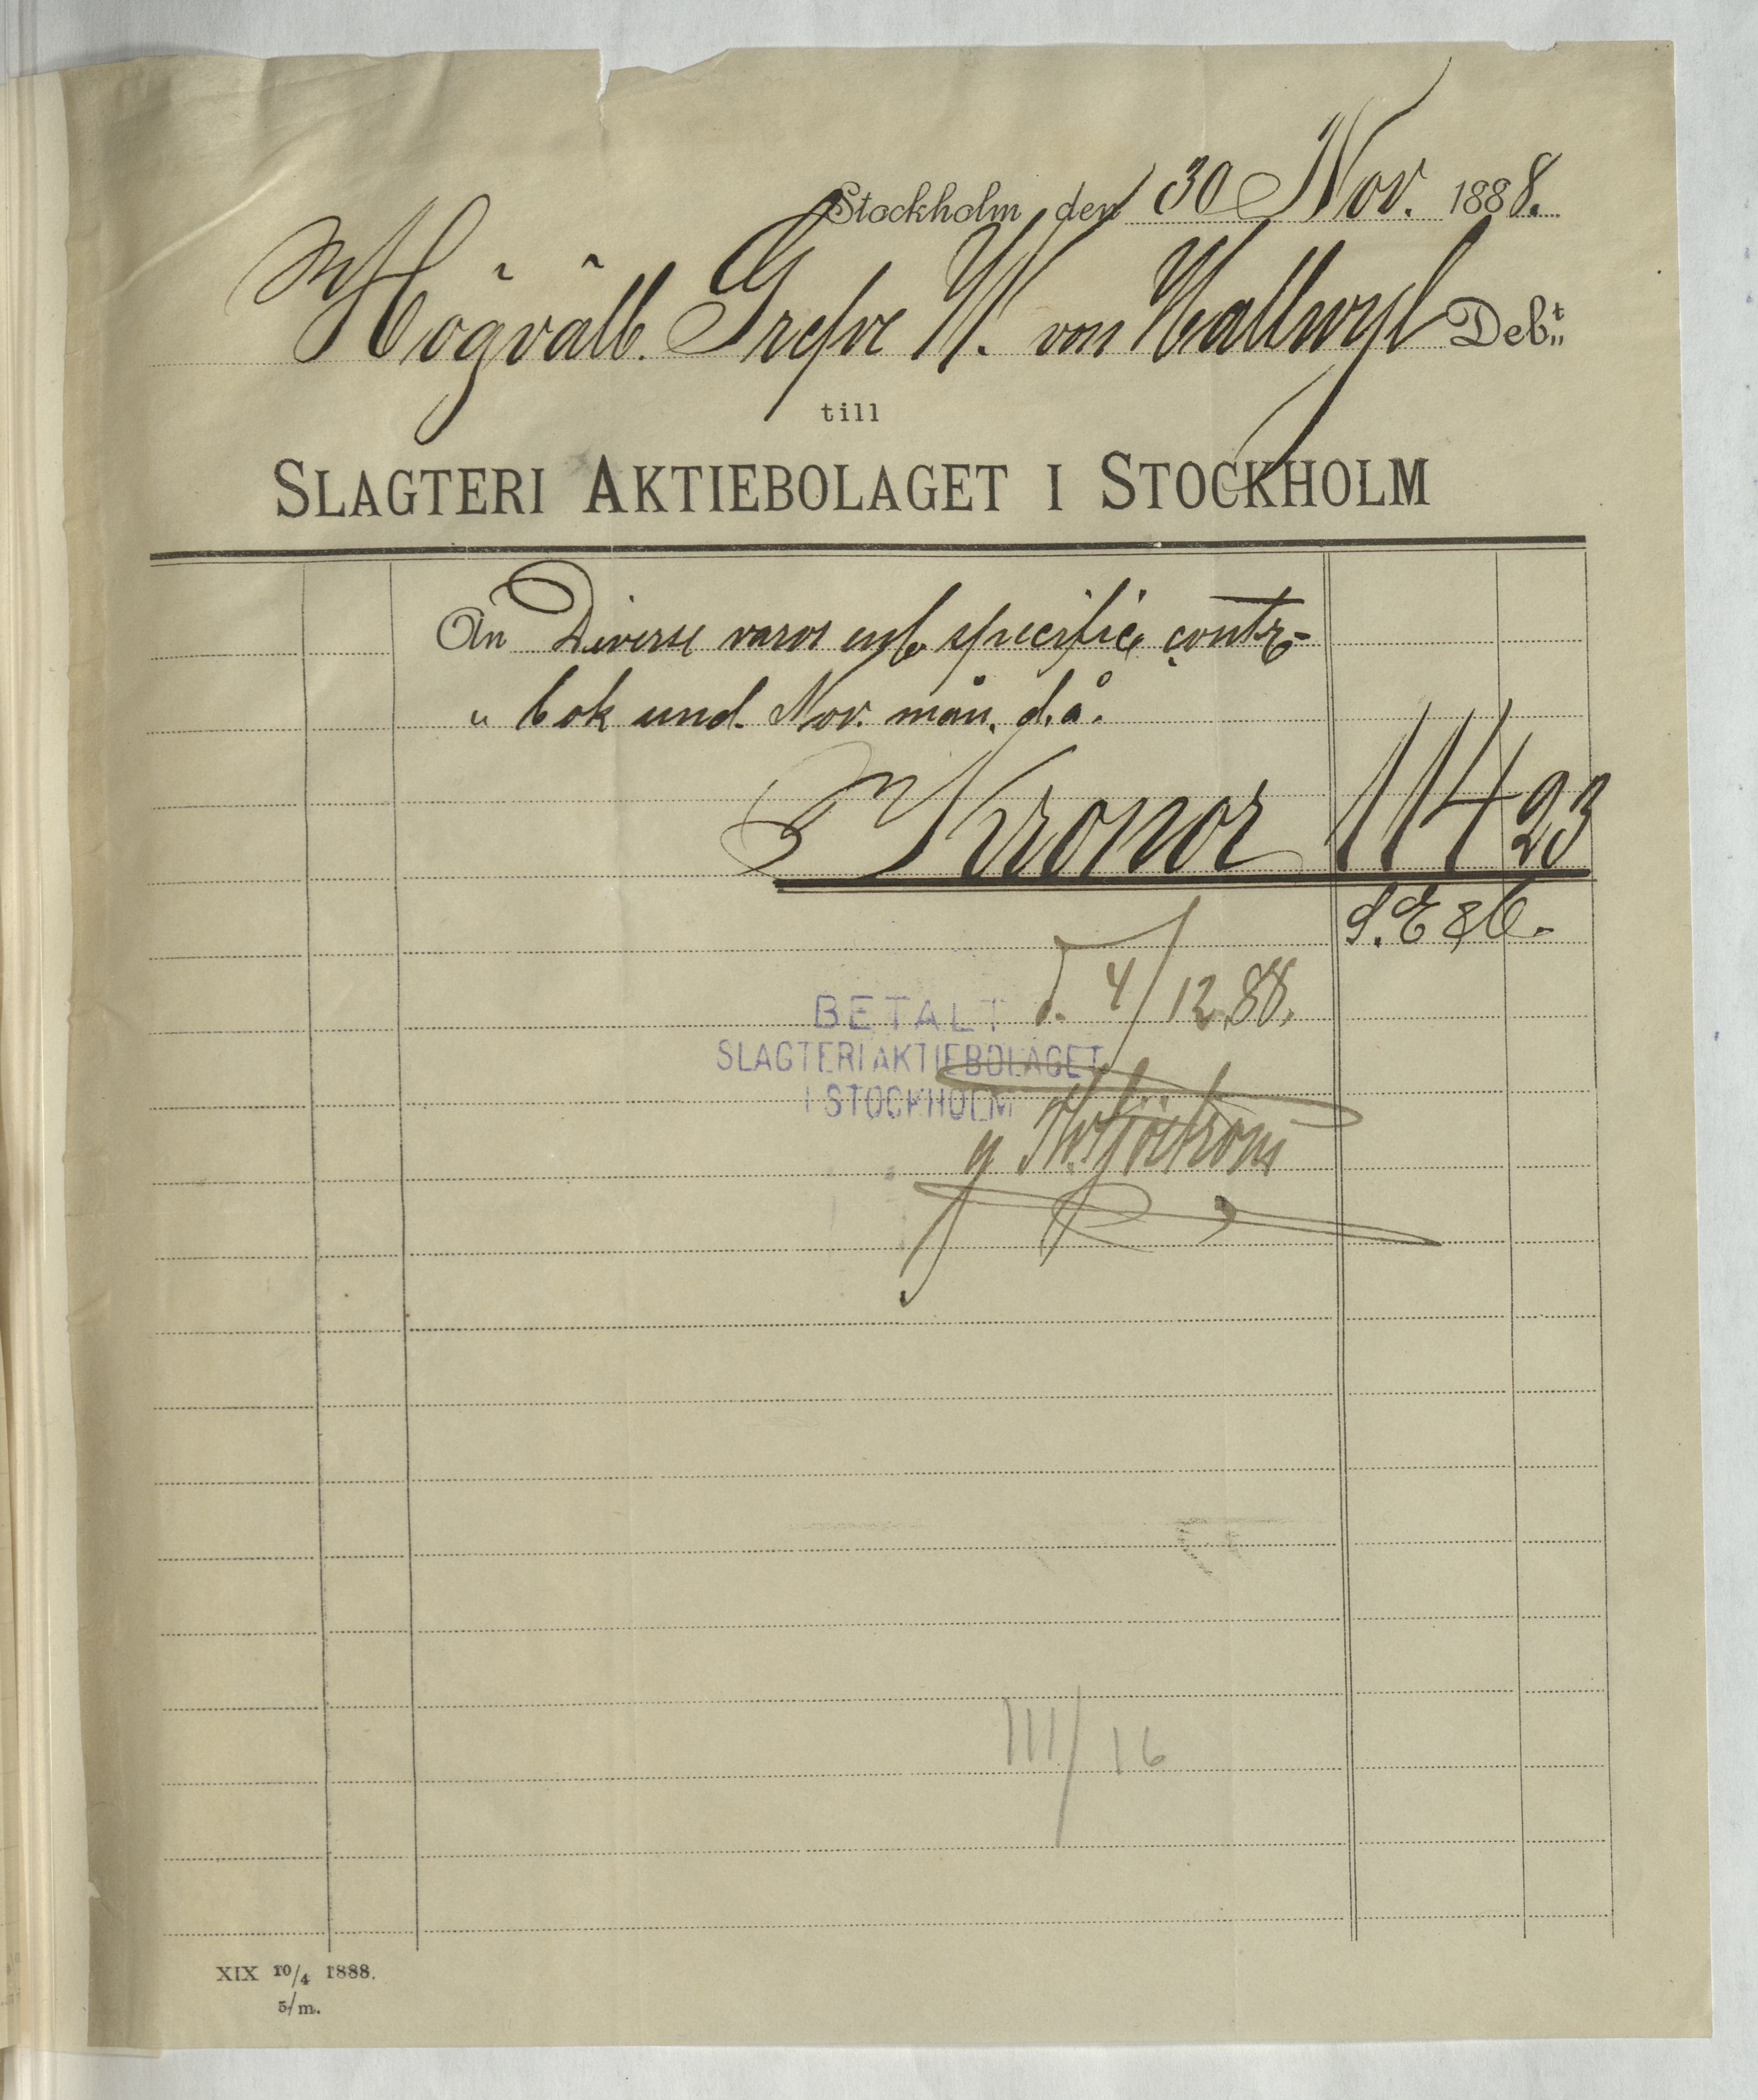 Stockholm den 30 Nov. 1888.
Högvälb. Grefve W. von Hallwyl Deb:t
till
SLAGTERI AKTIEBOLAGET I STOCKHOLM
An Diverse varor enl. specific. contr-
" bok und. Nov. mån. d.å.
Kronor 114 23
S.E & O.
BETALT d. 4/12 88.
SLAGTERIAKTIEBOLAGET
I STOCKHOLM
III/16
XIX 10/4 1888.
5/m.